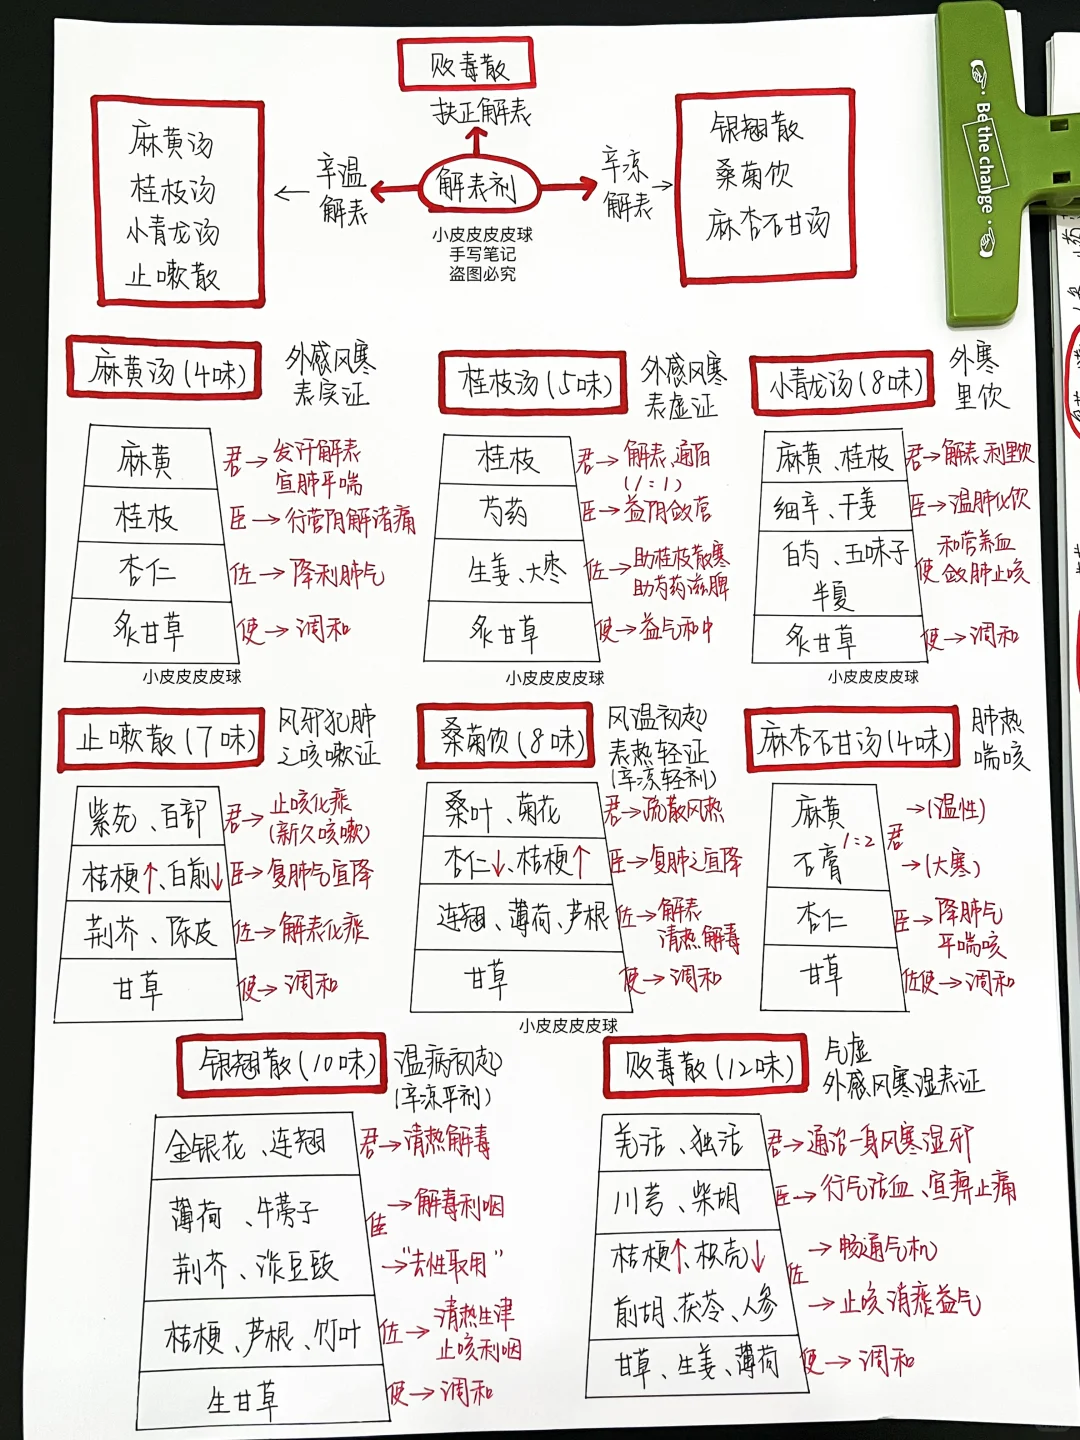 败毒散
扶正解表
麻黄汤
桂枝汤
小青龙汤
止嗽散
辛温
解表
解表剂
辛凉
解表
银翘散
桑菊饮
麻杏石甘汤
小皮皮皮皮球
手写笔记
盗图必究
Be the change
麻黄汤(4味)
外感风寒
表实证
麻黄
君→发汗解表
宣肺平喘
桂枝
臣→行营阴解诸痛
杏仁
佐→降利肺气
炙甘草
使→调和
小皮皮皮皮球
桂枝汤(5味)
外感风寒
表虚证
桂枝
君→解表、通阳
(1=1)
芍药
臣→益阴敛营
生姜、大枣
佐→助桂枝散寒
助芍药滋脾
炙甘草
使→益气和中
小皮皮皮皮球
小青龙汤(8味)
外寒
里饮
麻黄、桂枝
君→解表、利里饮
细辛、干姜
臣→温肺化饮
白芍、五味子
半夏
使
和营养血
敛肺止咳
炙甘草
使→调和
小皮皮皮皮球
止嗽散(7味)
风邪犯肺
之咳嗽证
紫苑、百部
君→止咳化痰
(新久咳嗽)
桔梗↑、白前↓
臣→复肺气宣降
荆芥、陈皮
佐→解表化痰
甘草
使→调和
桑菊饮(8味)
风温初起
表热轻证
(辛凉轻剂)
桑叶、菊花
君→疏散风热
杏仁↓、桔梗↑
臣→复肺之宣降
连翘、薄荷、芦根
佐→解表
清热解毒
甘草
使→调和
小皮皮皮皮球
麻杏石甘汤(4味)
肺热
喘咳
麻黄
→(温性)
1=2
君
石膏
→(大寒)
杏仁
臣→降肺气
平喘咳
甘草
佐使→调和
银翘散(10味)
温病初起
(辛凉平剂)
金银花、连翘
君→清热解毒
薄荷、牛蒡子
→解毒利咽
荆芥、淡豆豉
→"去性取用"
桔梗、芦根、竹叶
佐→清热生津
止咳利咽
生甘草
使→调和
败毒散(12味)
气虚
外感风寒湿表证
羌活、独活
君→通治一身风寒湿邪
川芎、柴胡
臣→行气活血、宣痹止痛
桔梗↑、枳壳↓
→畅通气机
佐
前胡、茯苓、人参
→止咳消痰益气
甘草、生姜、薄荷
使→调和